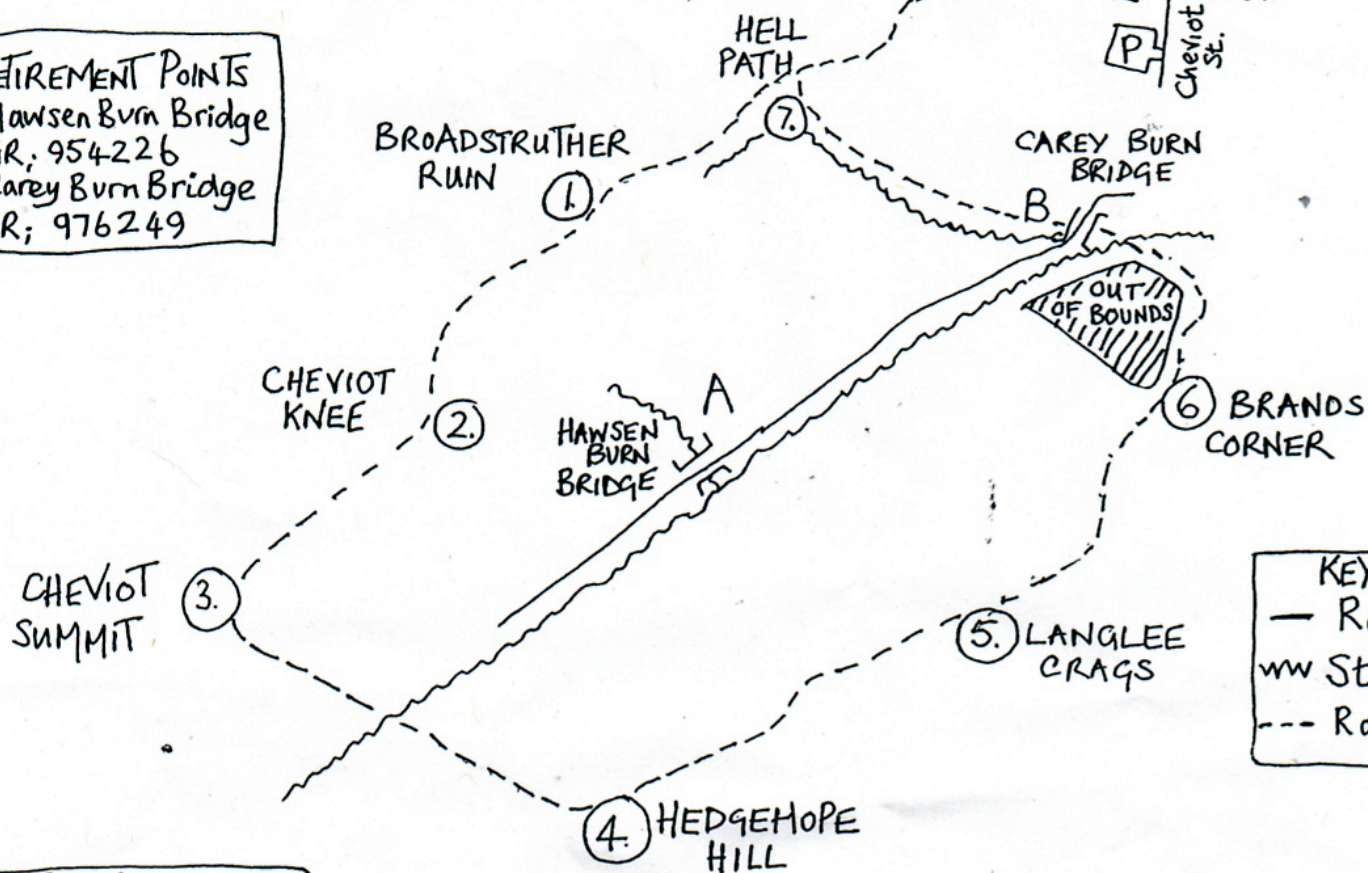 ETIREMENT POINTS
Hawsen Burn Bridge
R; 954226
Carey Burn Bridge
R; 976249
HELL
PATH
P
Cheviot
St.
7.
BROADSTRUTHER
RUIN
1.
CAREY BURN
BRIDGE
B
OUT
OF BOUNDS
CHEVIOT
KNEE
2.
A
HAWSEN
BURN
BRIDGE
6
BRANDS
CORNER
CHEVIOT
SUMMIT
3.
5.
LANGLEE
CRAGS
KEY
R
St
Ro
4.
HEDGEHOPE
HILL